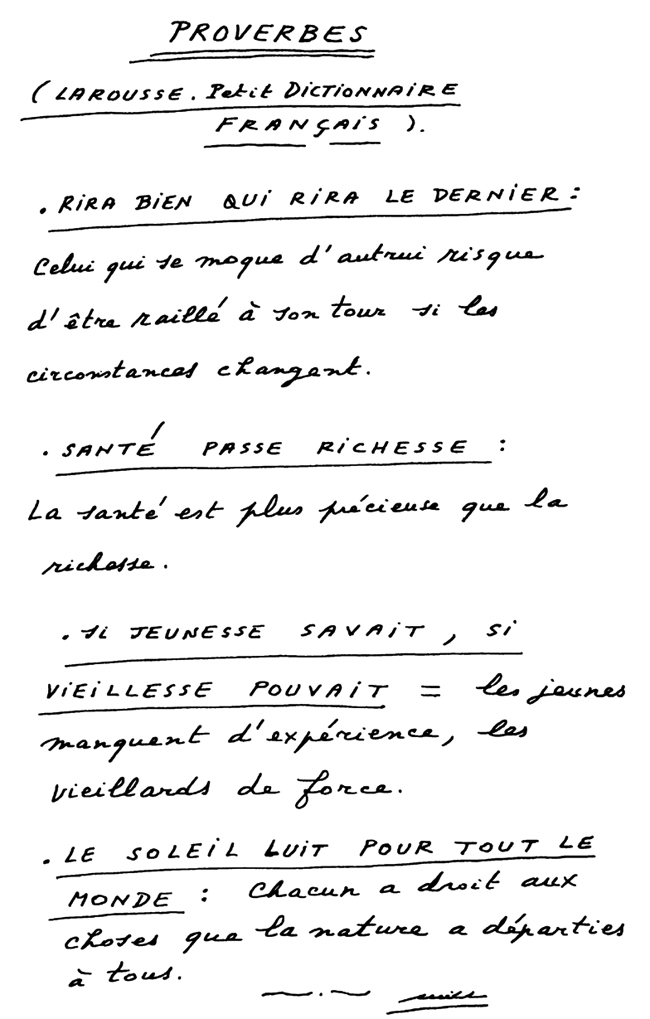 PROVERBES
( LAROUSSE. Petit DICTIONNAIRE
FRANÇAIS ).
. RIRA BIEN QUI RIRA LE DERNIER :
Celui qui se moque d'autrui risque
d'être raillé à son tour si les
circonstances changent.
. SANTÉ PASSE RICHESSE :
La santé est plus précieuse que la
richesse.
. SI JEUNESSE SAVAIT , SI
VIEILLESSE POUVAIT = les jeunes
manquent d'expérience, les
vieillards de force.
. LE SOLEIL LUIT POUR TOUT LE
MONDE : Chacun a droit aux
choses que la nature a départies
à tous.